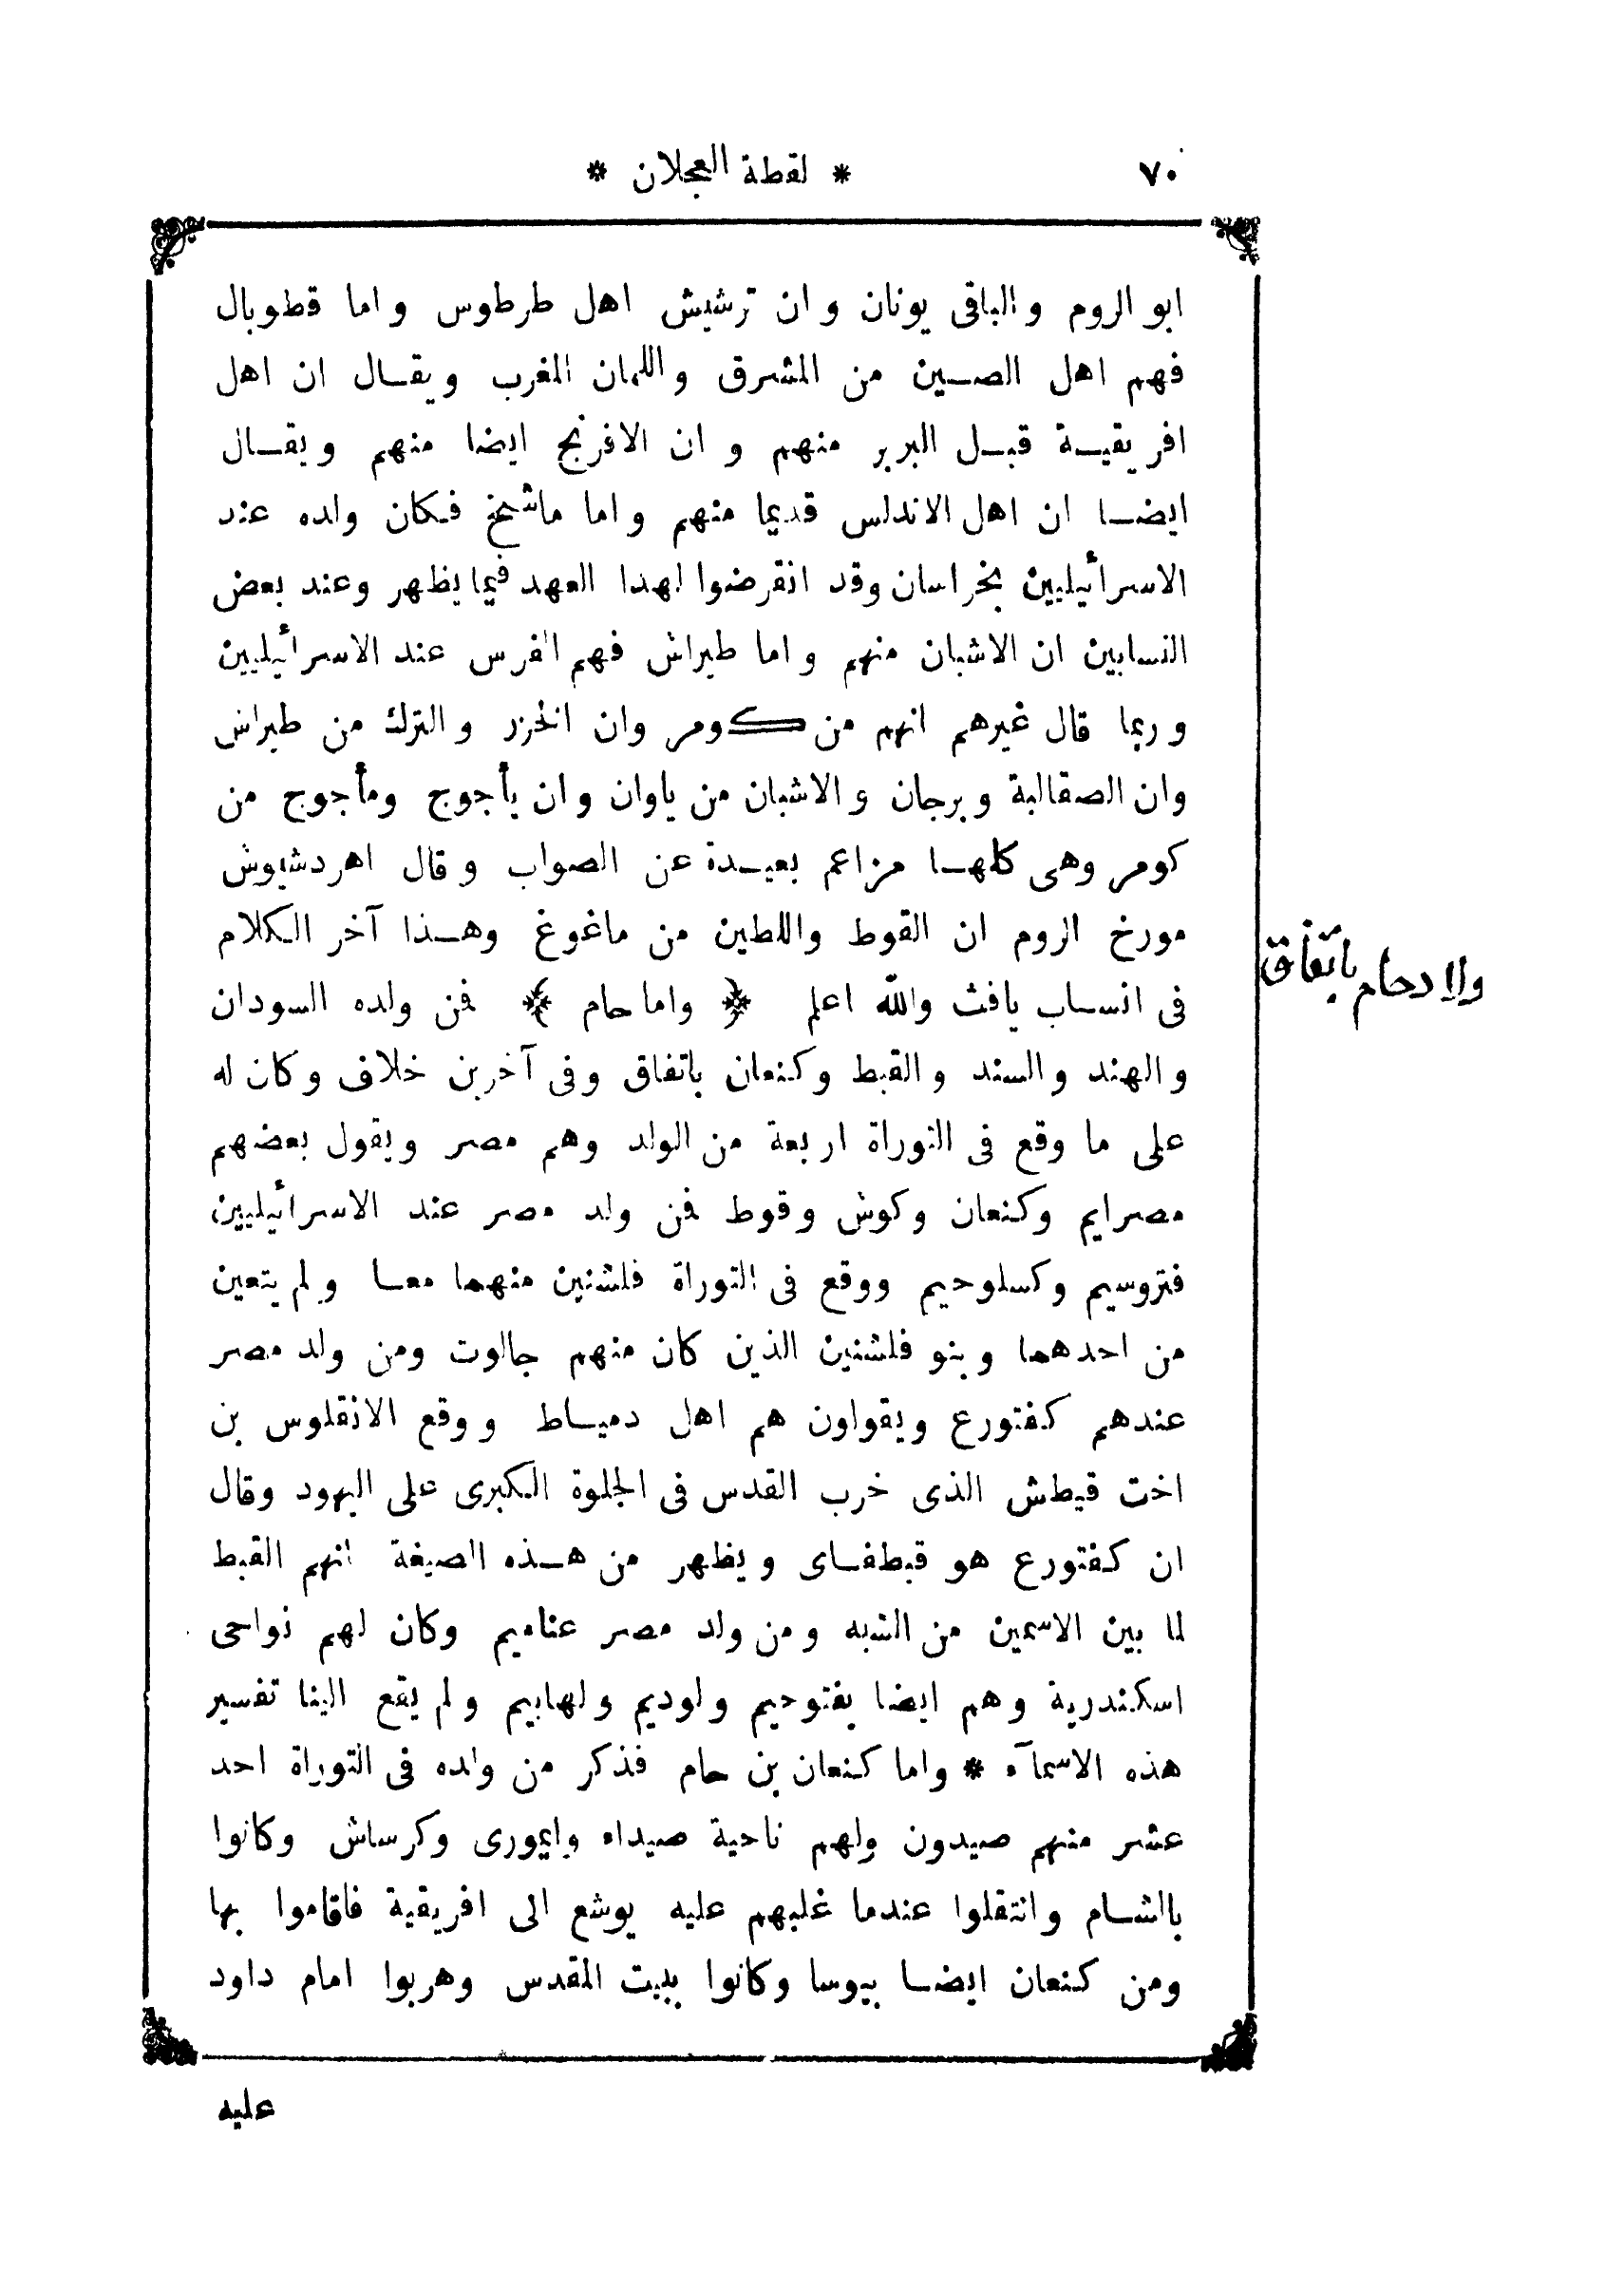 ٧٠ * لقطة العجلان *
ابو الروم والباقى يونان وان ترشيش اهل طرطوس واما قطوبال
فهم اهل الصين من المشرق واللمان المغرب ويقال ان اهل
افريقية قبل البربر منهم وان الافرنج ايضا منهم ويقال
ايضا ان اهل الاندلس قديما منهم واما ماشخ فكان ولده عند
الاسرائيليين بخراسان وقد انقرضوا لهذا العهد فيما يظهر وعند بعض
النسابين ان الاشبان منهم واما طيراش فهم الفرس عند الاسرائيليين
وربما قال غيرهم انهم من كومر وان الخزر والترك من طيراش
وان الصقالبة وبرجان والاشبان من ياوان وان يأجوج ومأجوج من
كومر وهى كلها مزاعم بعيدة عن الصواب وقال اهردشيوش
مورخ الروم ان القوط واللطين من ماغوغ وهذا آخر الكلام
فى انساب يافث والله اعلم ﴿ واما حام ﴾ فمن ولده السودان
والهند والسند والقبط وكنعان باتفاق وفى آخرين خلاف وكان له
على ما وقع فى التوراة اربعة من الولد وهم مصر ويقول بعضهم
مصرايم وكنعان وكوش وقوط فمن ولد مصر عند الاسرائيليين
فتروسيم وكسلوحيم ووقع فى التوراة فلشنين منهما معا ولم يتعين
من احدهما وبنو فلشنين الذين كان منهم جالوت ومن ولد مصر
عندهم كفتورع ويقولون هم اهل دمياط ووقع الانقلوس بن
اخت قيطش الذى خرب القدس فى الجلوة الكبرى على اليهود وقال
ان كفتورع هو قبطفاى ويظهر من هذه الصيغة انهم القبط
لما بين الاسمين من الشبه ومن ولد مصر عناميم وكان لهم نواحى
اسكندرية وهم ايضا يفتوحيم ولوديم ولهابيم ولم يقع الينا تفسير
هذه الاسمآء * واما كنعان بن حام فذكر من ولده فى التوراة احد
عشر منهم صيدون ولهم ناحية صيداء وايمورى وكرساش وكانوا
بالشام وانتقلوا عندما غلبهم عليه يوشع الى افريقية فاقاموا بها
ومن كنعان ايضا يبوسا وكانوا ببيت المقدس وهربوا امام داود
عليه
ولاد حام باتفاق